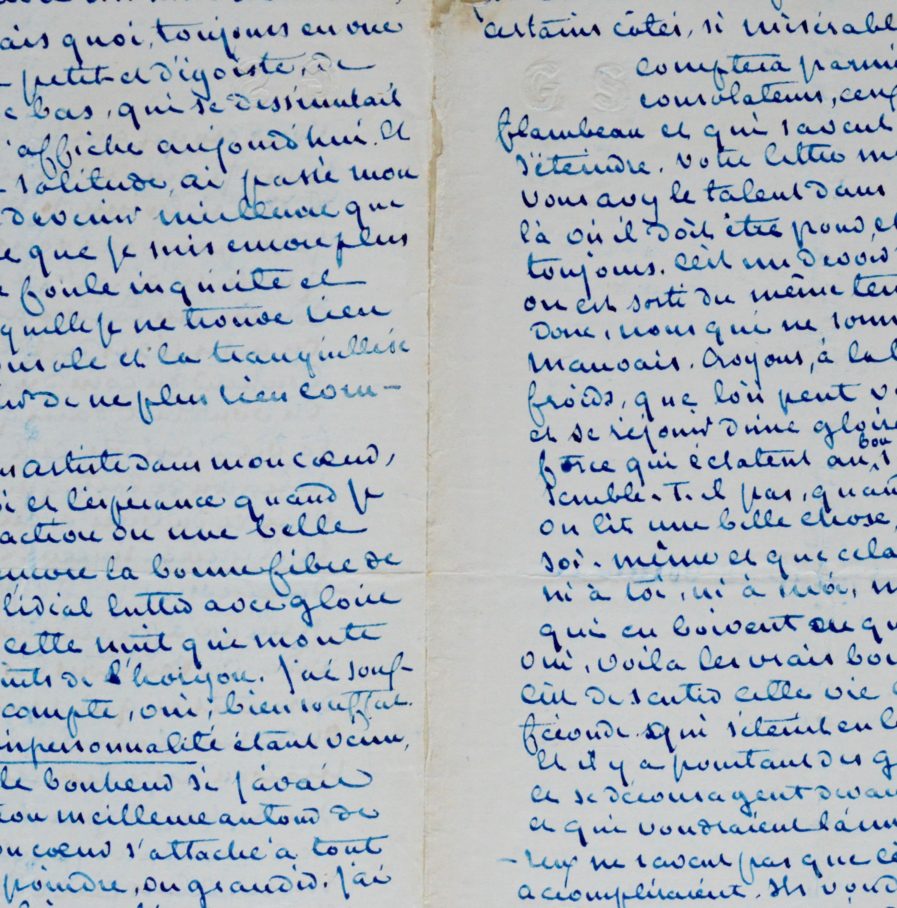 ais quoi, toujours en vue
petit et d'égoïste, de
bas, qui se dissimulait
affiche aujourd'hui. Et
solitude, ai passé mon
devenir meilleure que
que je suis encore plus
foule inquiète et
quelle je ne trouve rien
et la tranquillité
de ne plus rien com-
artiste dans mon cœur,
et l'espérance quand je
action ou une belle
encore la bonne fibre de
l'idéal lutter avec gloire
cette nuit qui monte
de l'horizon. J'ai souf-
compte, oui, bien souffert.
impersonnalité étant venue,
le bonheur si j'avais
meilleure autour de
cœur s'attache à tout
poindre, ou grandir. J'ai
certains côtés, si misérable
comptera parmi
consolateurs, ceux
flambeau et qui savent
s'éteindre. Votre lettre m
Vous avez le talent dans
là où il doit être pour, et
toujours. C'est un devoir
on est sorti du même
Donc, nous qui ne som
mauvais. Croyons, à la
froids, que l'on peut
et se réjouir d'une gloire
force qui éclatent au bon
Semble-T-il pas, quand
on lit une belle chose,
soi-même et que cela
ni à toi, ni à moi,
qui en boivent ou
Oui, voilà les vrais
de sentir cette vie
féconde qui s'éteint en
Et il y a pourtant des g
et se découragent
et qui voudraient
ne savent pas que
accompliraient. Ils